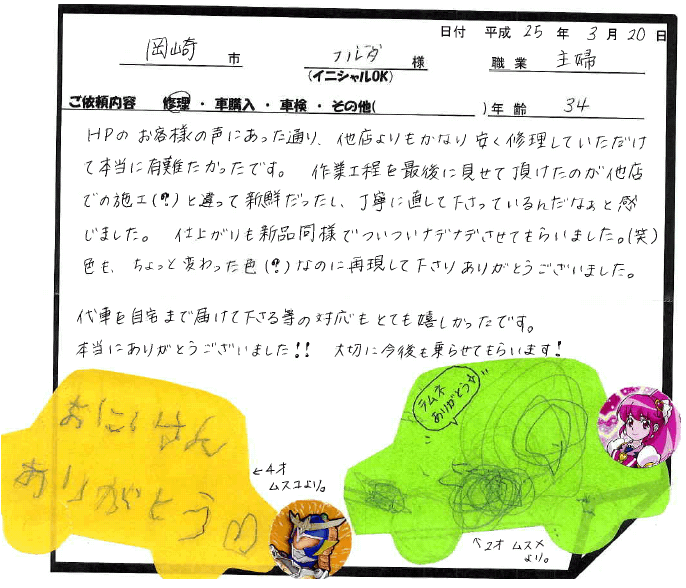 日付 平成 25 年 3 月 20 日
岡崎 市 フルダ 様 職業 主婦
(イニシャルOK)
ご依頼内容 修理・車購入・車検・その他( )年齢 34
HPの お客様の声にあった通り、他店よりもかなり 安く修理していただけ
て本当に有難たかったです。 作業工程を最後に見せて頂けたのが他店
での施工(?)と違って新鮮だったし、丁寧に直して下さっているんだなぁと感
じました。 仕上がりも新品同様でついついナデナデさせてもらいました。(笑)
色も、ちょっと変わった色(?)なのに再現して下さりありがとうございました。
代車を自宅まで届けて下さる等の対応もとても嬉しかったです。
本当にありがとうございました!! 大切に今後も乗らせてもらいます!
おにいさん
ありがとう
←4才
ムスコより。
ラムネ
ありがとう
↖2才 ムスメ
より。